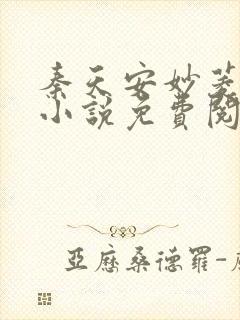 秦天安妙菱
小說免費閱
亞歷桑德羅-